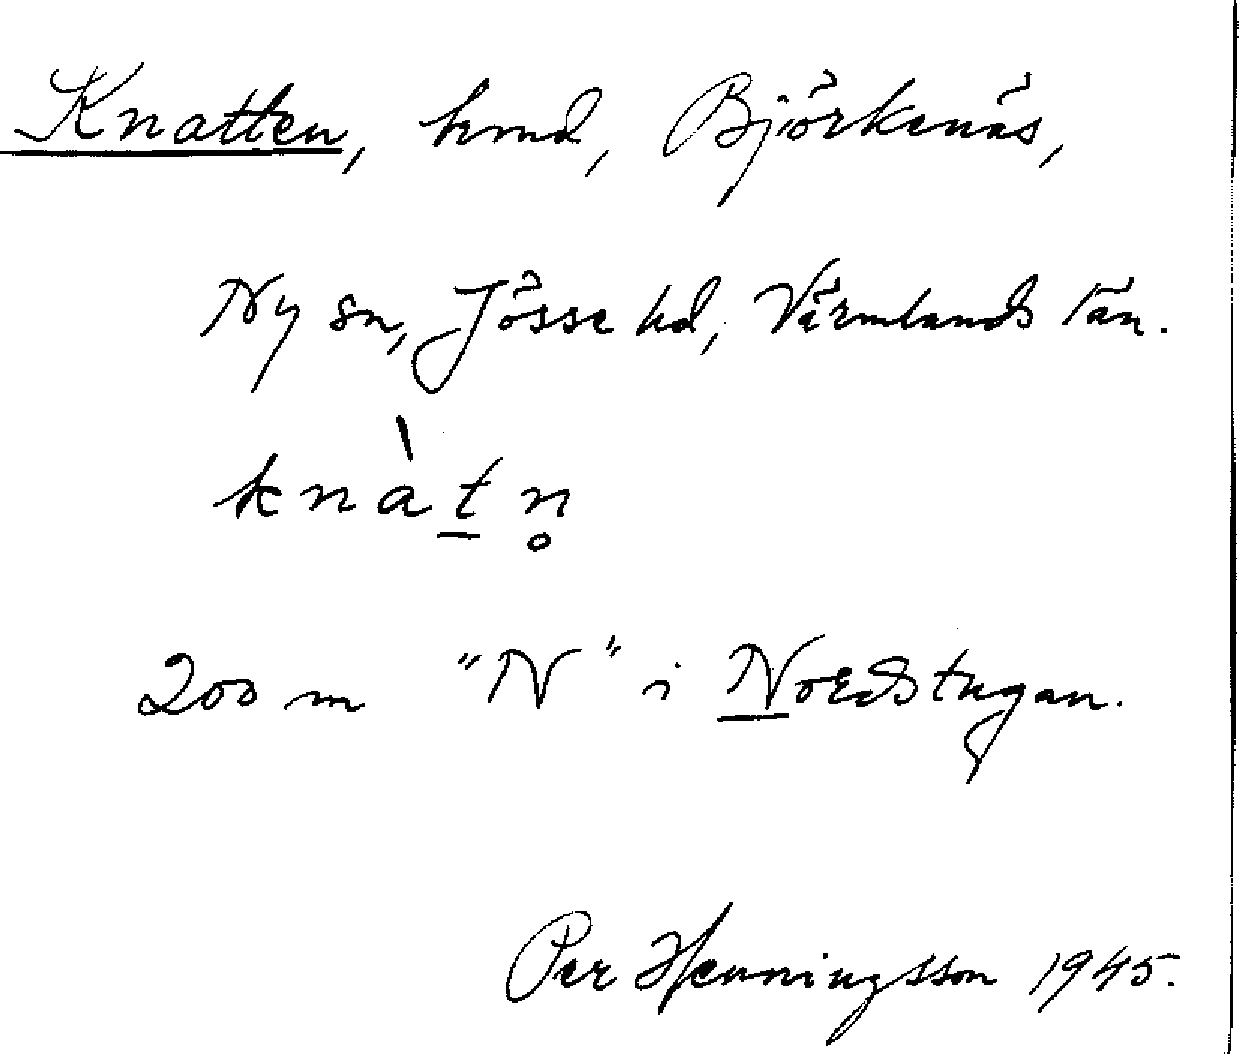 Knatten, hmd, Björkenäs,
Ny sn, Jösse hd, Värmlands län.
knàt̠n̥
200 m "N" i Nordstugan.
Per Henningsson 1945.